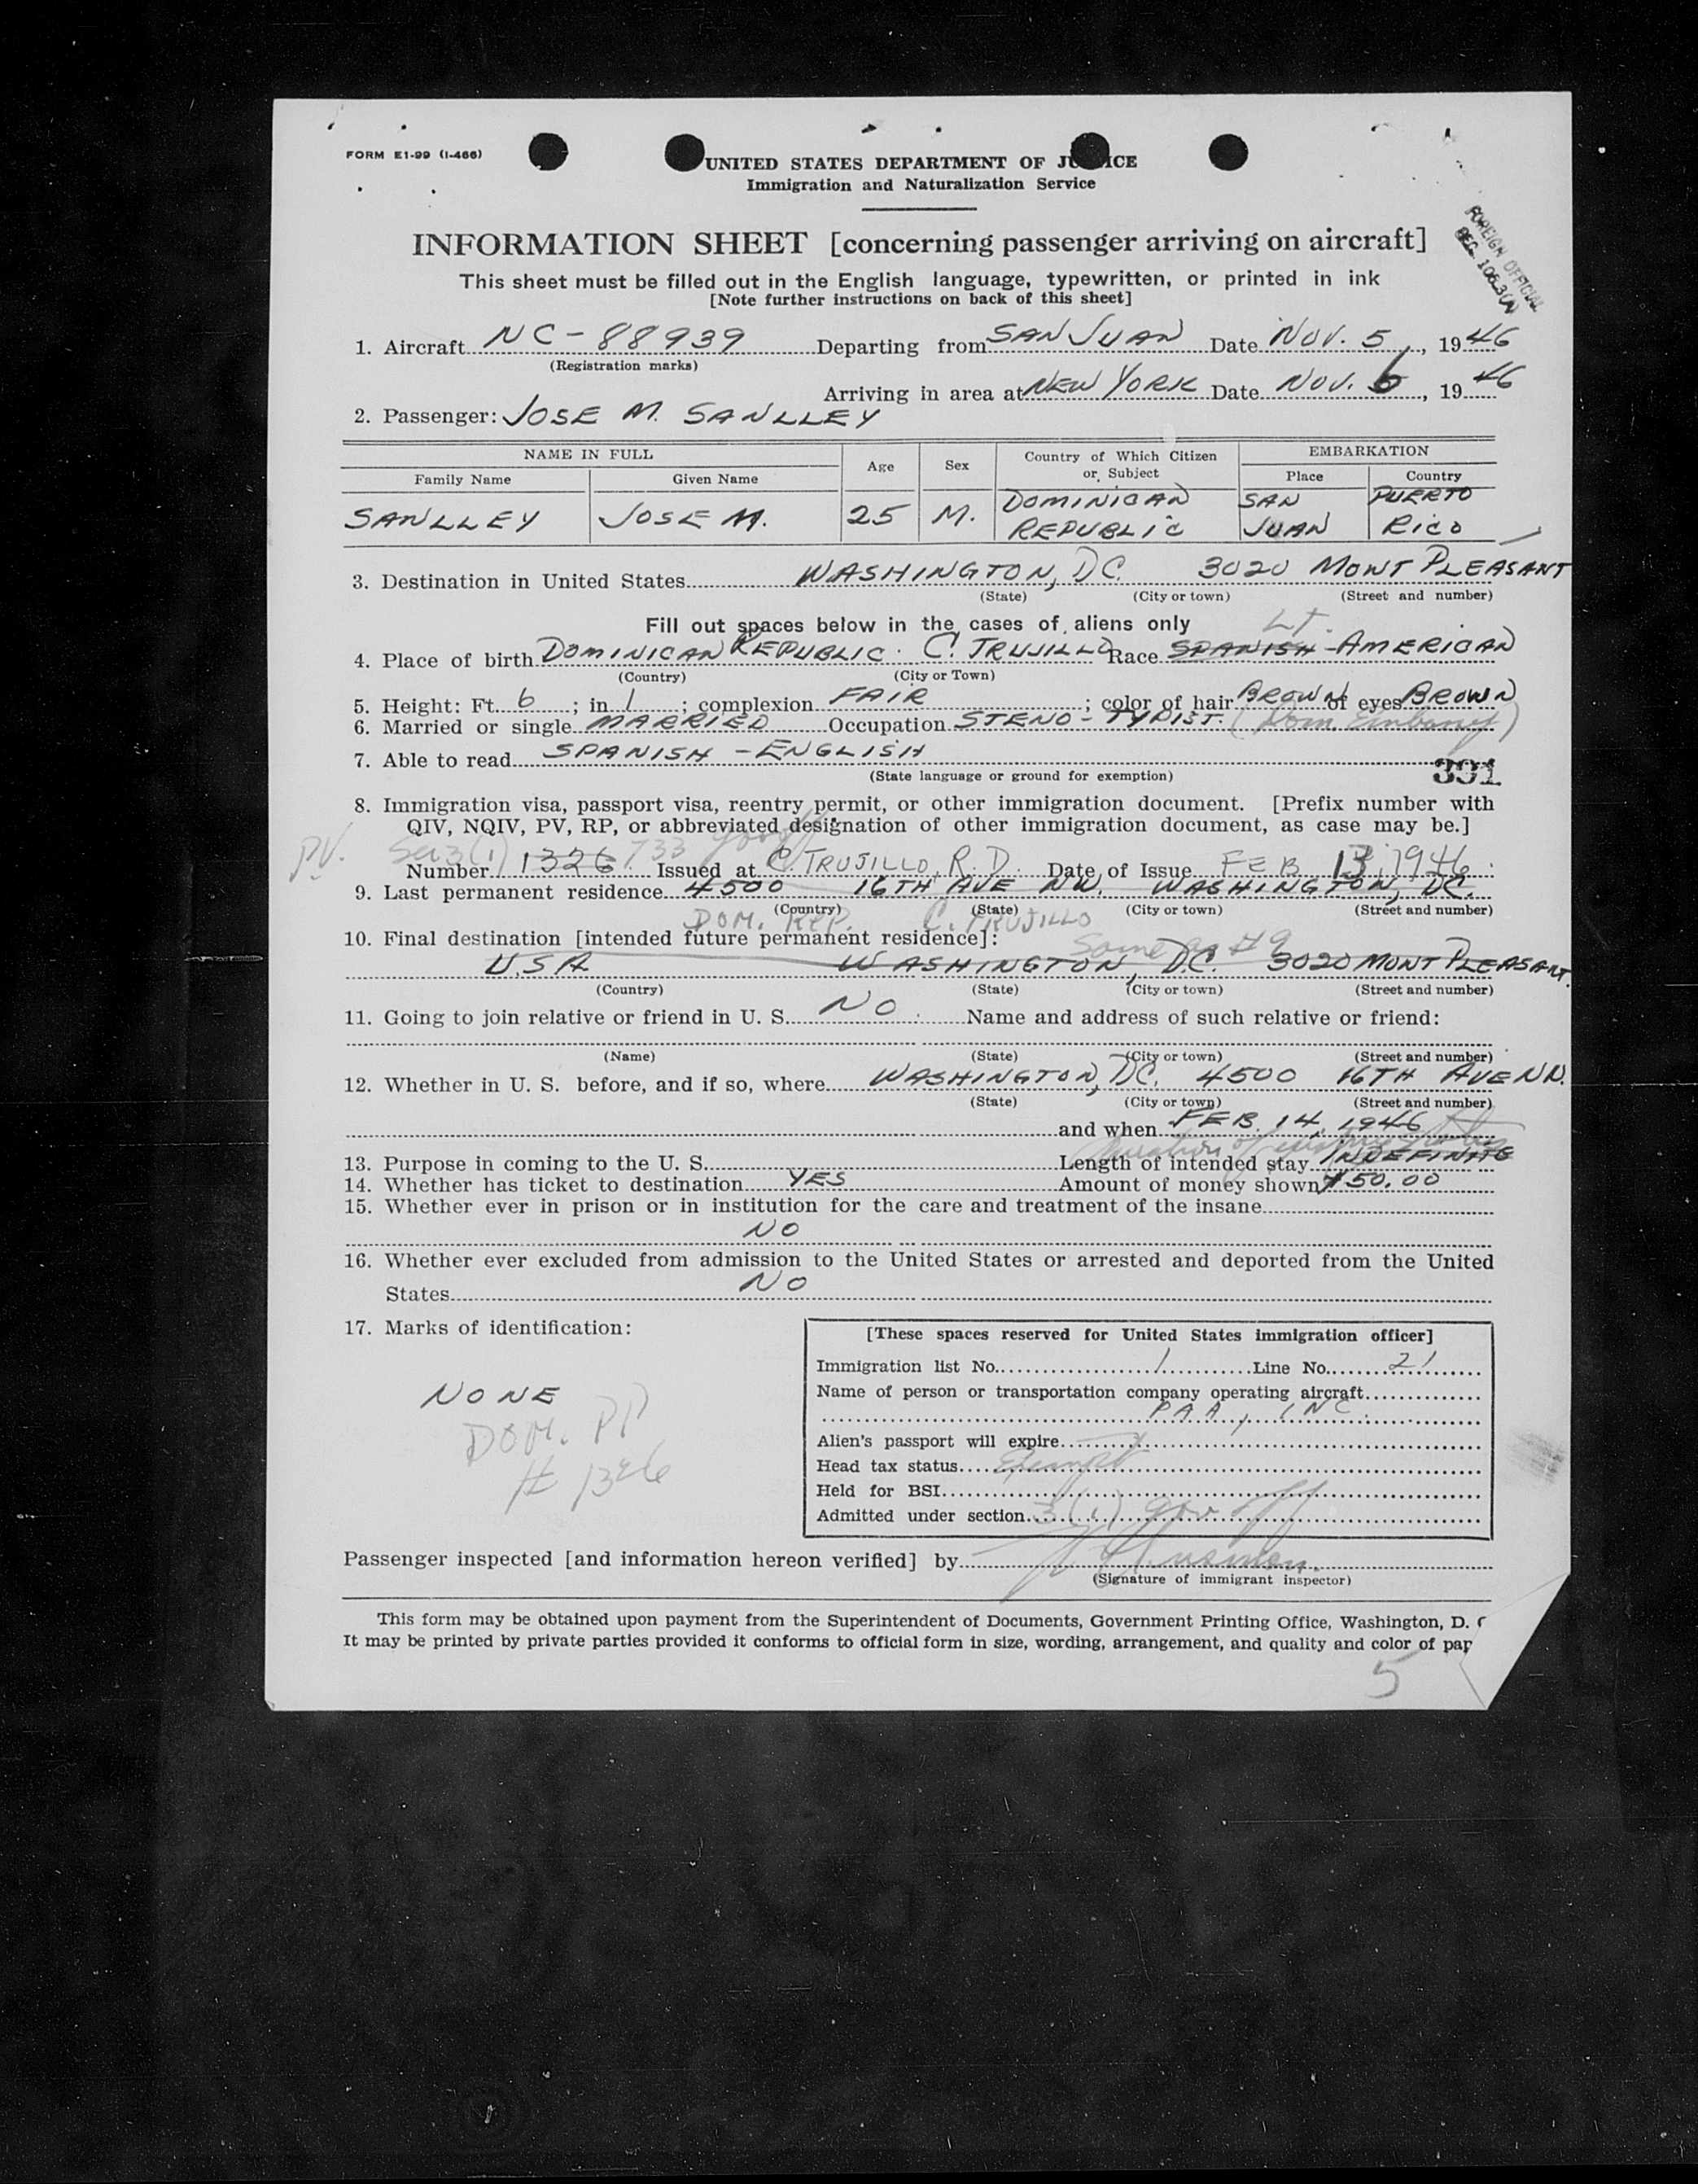 FORM E1-99 (I-466)
UNITED STATES DEPARTMENT OF JUSTICE
Immigration and Naturalization Service
FOREIGN OFFICIAL
INFORMATION SHEET [concerning passenger arriving on aircraft]
This sheet must be filled out in the English language, typewritten, or printed in ink
[Note further instructions on back of this sheet]
1. Aircraft NC-88939 Departing from SAN JUAN Date NOV. 5, 1946
(Registration marks)
Arriving in area at NEW YORK Date NOV. 6, 1946
2. Passenger: JOSE M. SANLLEY
NAME IN FULL Age Sex Country of Which Citizen or Subject EMBARKATION
Family Name Given Name Place Country
SANLLEY JOSE M. 25 M. DOMINICAN REPUBLIC SAN JUAN PUERTO RICO
3. Destination in United States WASHINGTON, DC. 3020 MONT PLEASANT
(State) (City or town) (Street and number)
Fill out spaces below in the cases of aliens only
4. Place of birth DOMINICAN REPUBLIC. C. TRUJILLO Race SPANISH-AMERICAN
(Country) (City or Town)
5. Height: Ft. 6; in. 1; complexion FAIR; color of hair BROWN of eyes BROWN
6. Married or single MARRIED Occupation STENO-TYPIST. (Dom. Embassy)
7. Able to read SPANISH - ENGLISH
(State language or ground for exemption) 391
8. Immigration visa, passport visa, reentry permit, or other immigration document. [Prefix number with
QIV, NQIV, PV, RP, or abbreviated designation of other immigration document, as case may be.]
PV. Sec 3(1) 733
Number 1326 Issued at C. TRUJILLO, R.D. Date of Issue FEB 13, 1946
9. Last permanent residence 4500 16TH AVE NW. WASHINGTON, DC.
(Country) (State) (City or town) (Street and number)
DOM. REP. C. TRUJILLO
10. Final destination [intended future permanent residence]:
Same as #9
USA WASHINGTON, D.C. 3020 MONT PLEASANT.
(Country) (State) (City or town) (Street and number)
11. Going to join relative or friend in U. S. NO Name and address of such relative or friend:
(Name) (State) (City or town) (Street and number)
12. Whether in U. S. before, and if so, where WASHINGTON, DC. 4500 16TH AVE NW.
(State) (City or town) (Street and number)
and when FEB. 14, 1946
13. Purpose in coming to the U. S. Length of intended stay INDEFINITE
14. Whether has ticket to destination YES Amount of money shown $50.00
15. Whether ever in prison or in institution for the care and treatment of the insane
NO
16. Whether ever excluded from admission to the United States or arrested and deported from the United
States NO
17. Marks of identification:
NONE
DOM. PP
# 1326
[These spaces reserved for United States immigration officer]
Immigration list No. 1 Line No. 21
Name of person or transportation company operating aircraft
PAA, INC.
Alien's passport will expire
Head tax status Exempt
Held for BSI
Admitted under section 3(1) gov off
Passenger inspected [and information hereon verified] by
(Signature of immigrant inspector)
This form may be obtained upon payment from the Superintendent of Documents, Government Printing Office, Washington, D. C
It may be printed by private parties provided it conforms to official form in size, wording, arrangement, and quality and color of pap
5